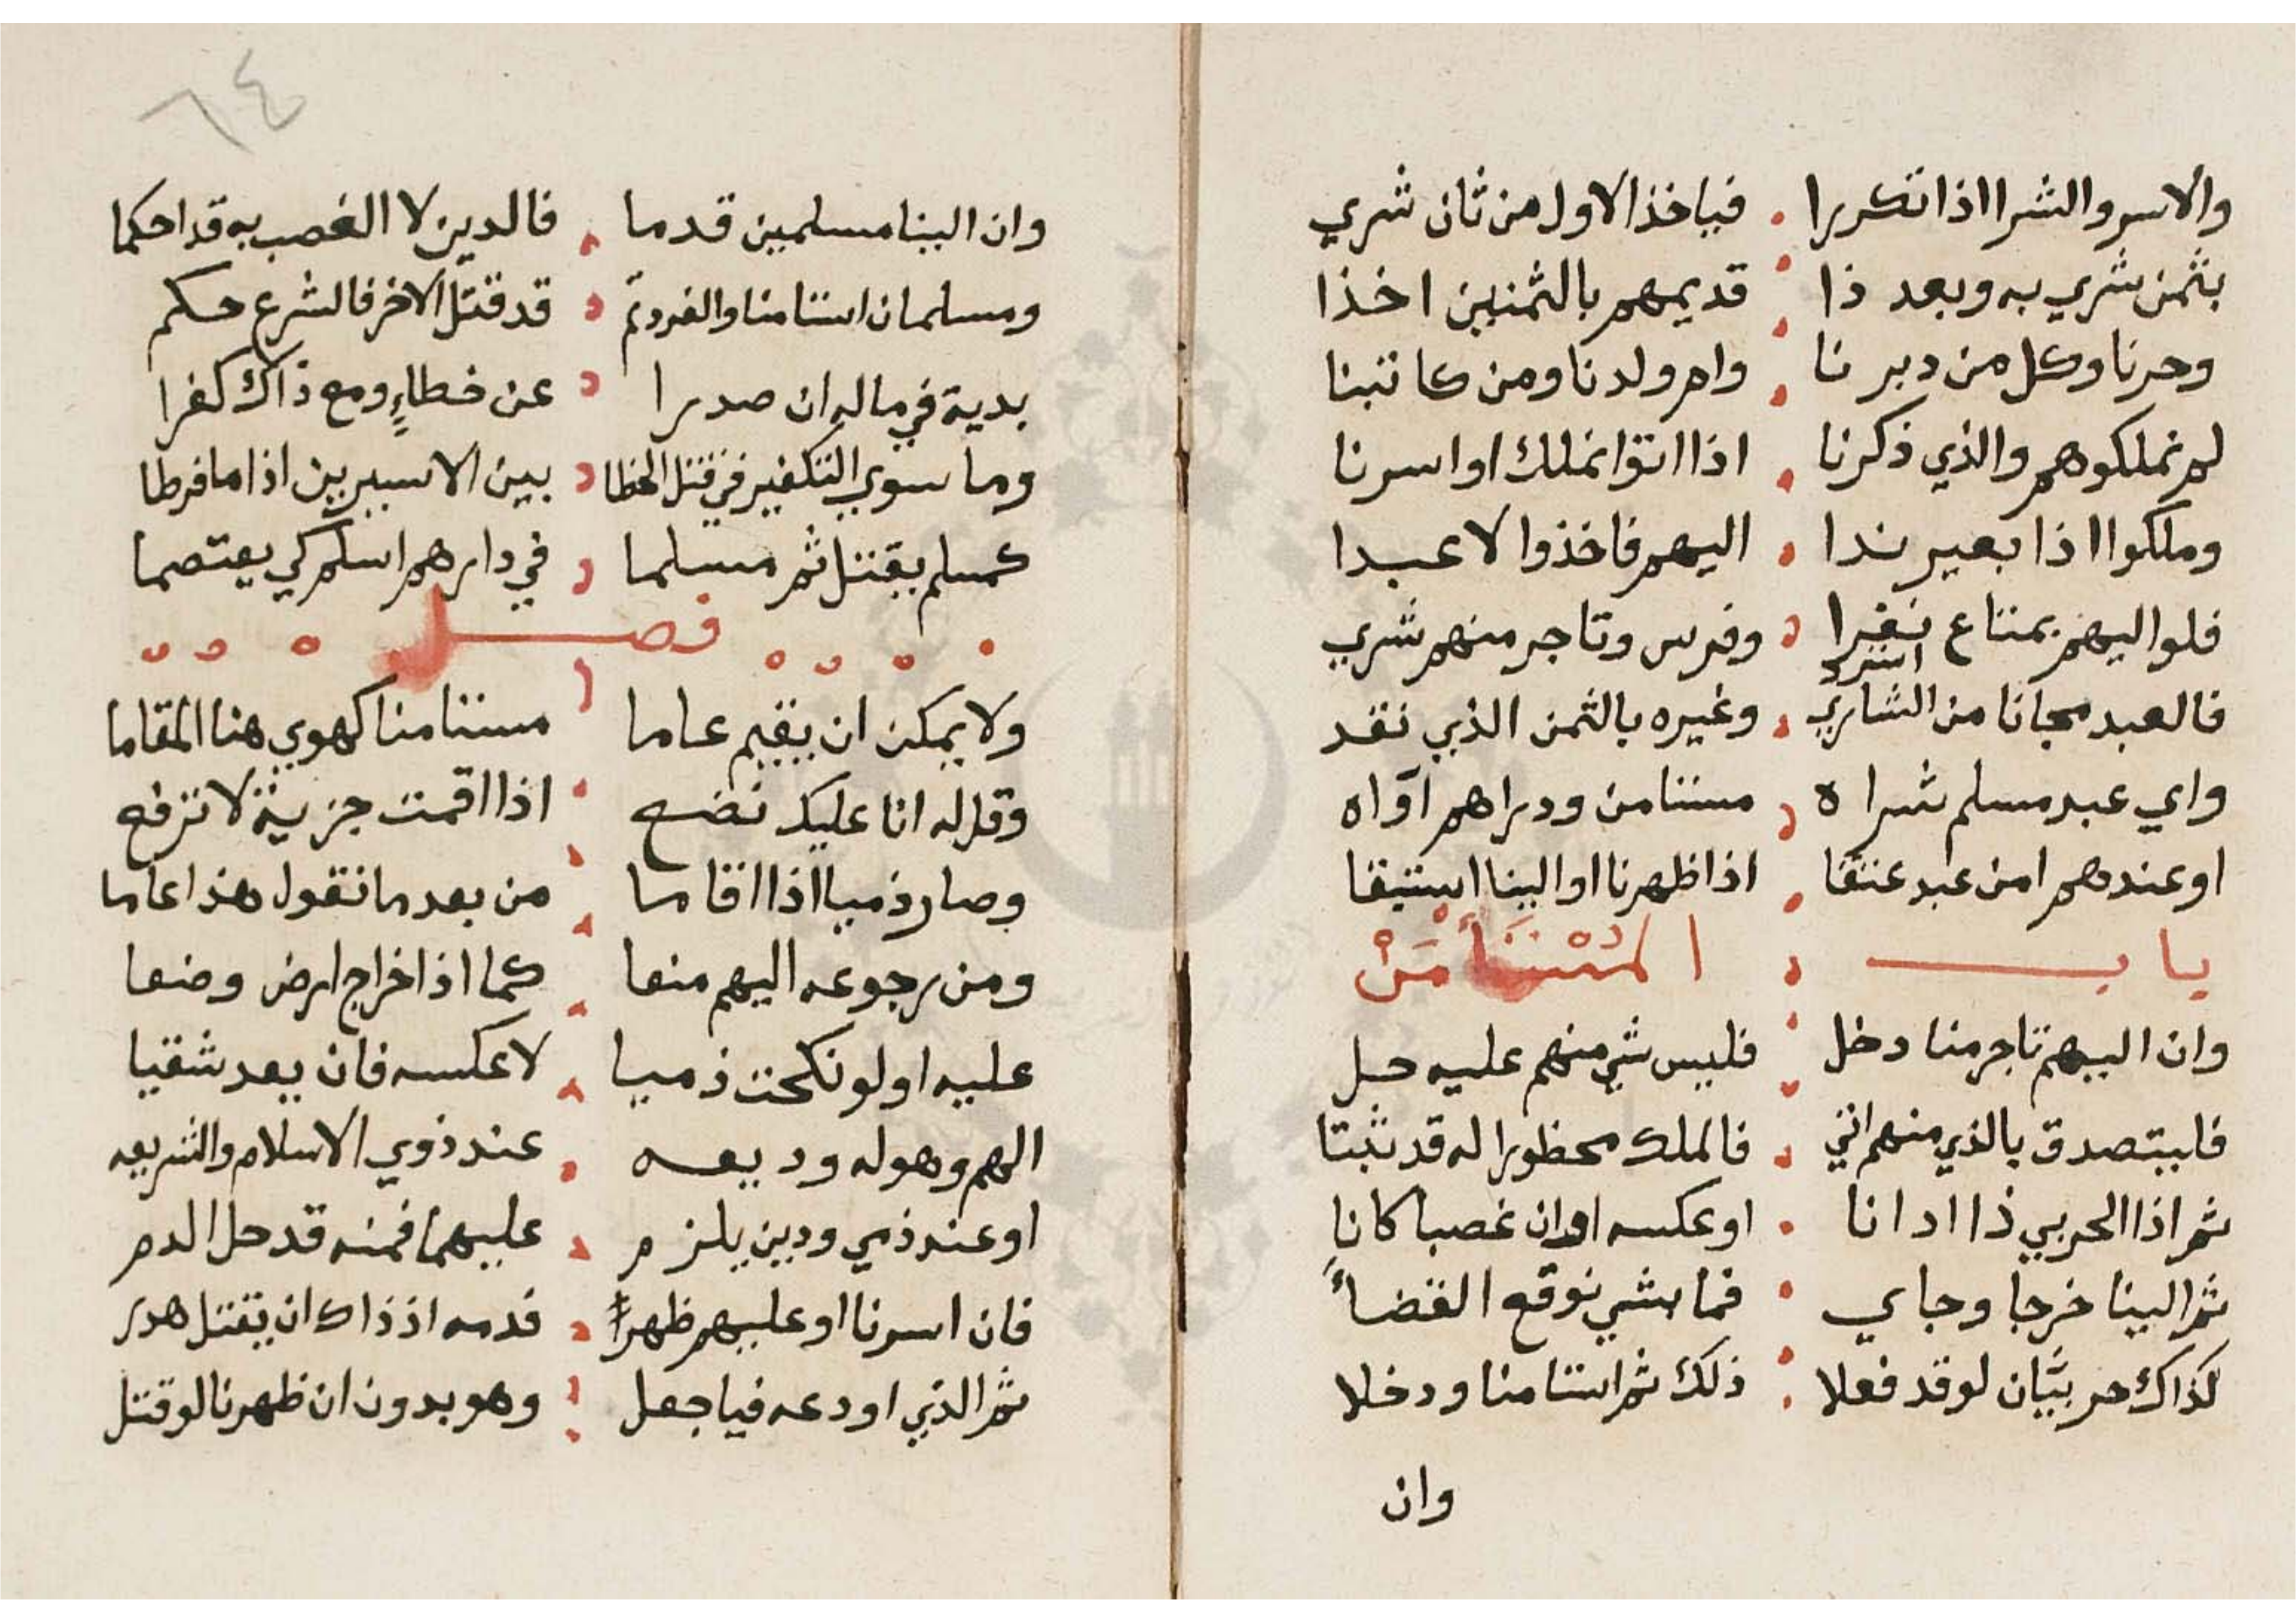 والاسر والشرا اذا تكررا فياخذ الاول من ثان شري
بثمن شري به وبعد ذا قديمهم بالثمنين اخذا
وحرنا وكل من دبرنا وام ولدنا ومن كاتبنا
لم نملكوهم والذي ذكرنا اذا اتوا نملك او اسرنا
وملكوا اذا بعير ندا اليهم فاخذوا لا عبدا
فلو اليهم بمتاع نفرا وفرس وتاجر منهم شري
فالعبد مجانا من الشاري استرد وغيره بالثمن الذي نقد
واي عبد مسلم شراه مستامن ودراهم آواه
او عندهم امن عبد عتقا اذا ظهرنا او الينا استبقا
باب المُسْتَأْمَنْ
وان اليهم تاجر منا دخل فليس شي منهم عليه حل
فليتصدق بالذي منهم اتي فالملك محظورا له قد ثبتا
ثم اذا الحربي ذا ادانا او عكسه او ان غصبا كانا
ثم الينا خرجا وجاي فما بشي نوقع القضاأ
كذاك حربيَّان لو قد فعلا ذلك ثم استامنا ودخلا
وان
٦٤
وان الينا مسلمين قدما فالدين لا الغصب به قد احكما
ومسلمان استامنا والفرد تم قد قتل الاخر فالشرع حكم
بدية في ماله ان صدرا عن خطاءٍ ومع ذاك كفرا
وما سوي التكفير في قتل الخطا بين الاسيرين اذا ما فرطا
كمسلم يقتل ثم مسلما في دارهم اسلم كي يعتصما
فصل
ولا يمكن ان يقيم عاما مستامنا كهوي هنا المقاما
وقل له انا عليك نضع اذا اقمت جزية لا ترفع
وصار ذميا اذا اقاما من بعد ما نقول هذا عاما
ومن رجوعه اليهم منعا كما اذا خراج ارض وضعا
عليه او لو نكحت ذميا لا عكسه فان يعد شقيا
الهم وهو له وديعه عند ذوي الاسلام والشريعه
او عند ذمي ودين يلزم عليهما فمنه قد حل الدم
فان اسرنا او عليهم ظهرا فدمه اذ ذاك ان يقتل هدر
ثم الذي اودعه فيا جعل وهو بدون ان ظهرنا لو قتل